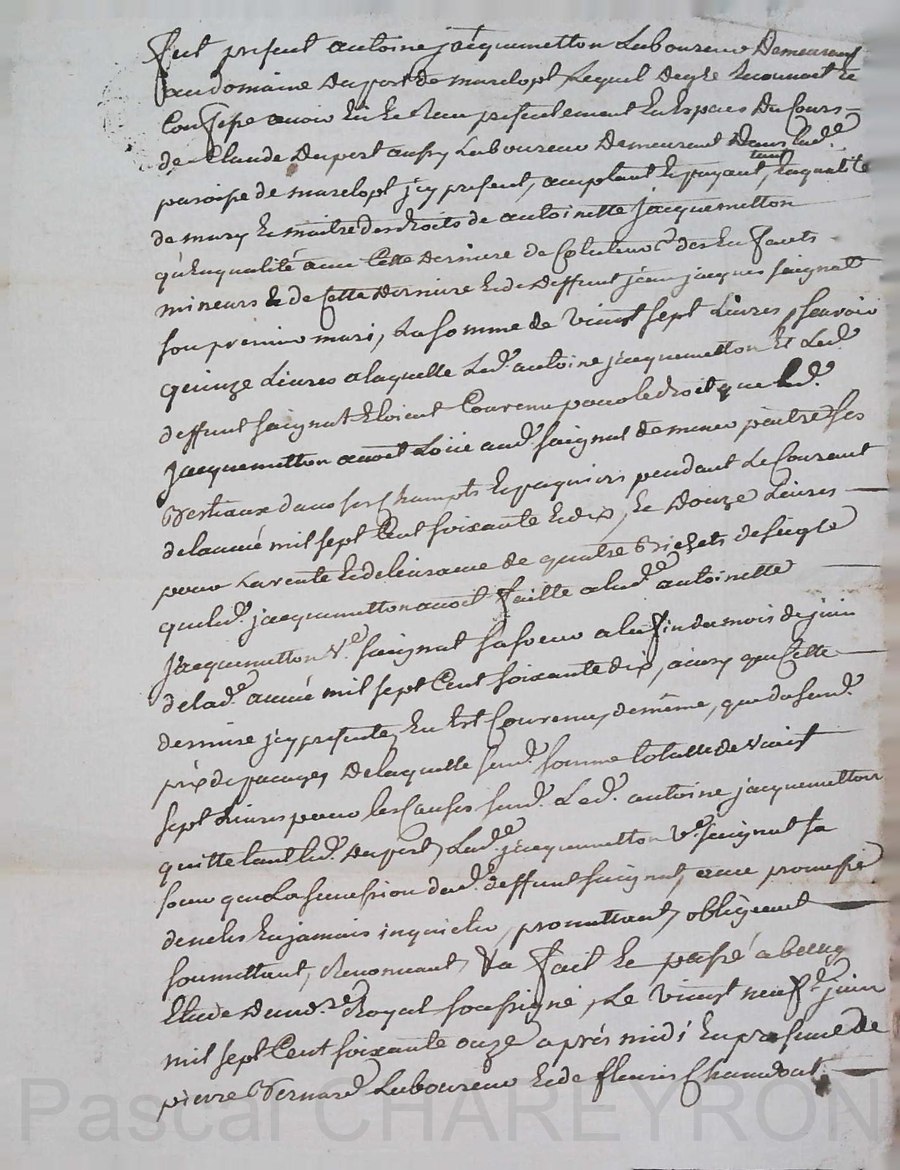 fut present antoine jacquemetton Laboureur demeurant
au domaine duport de marclopt Lequel degré Reconnoit et
Confesse avoir Eu et Recu presentement En Especes du Cours
de Claude duport aussy Laboureur demeurant dans lad.e
paroisse de marclopt jcy present, acceptant et payant, tant Enqualité
de mary et maitre des droits de antoinette jacquemetton
qu'Enqualité avec Cette derniere de des Enfants
mineurs de Cette derniere et de deffunt jean jacques saignat
son premier mari, La somme de vingt sept Livres, scavoir
quinze Livres a laquelle Led. antoine jacquemetton Et Led.
deffunt saignat Etoient Convenu pour le droit que Led.
jacquemetton avoit Loüé aud. saignat de mener paitre ses
Bestiaux dans ses Champts et paquiers pendant Le Courant
de lannée mil sept Cent soixante et dix, et douze Livres
pour La vente et delivrance de quatre Bichets de seigle
que led. jacquemetton avoit faitte a lad.e antoinette
jacquemetton v.e saignat sa soeur a la fin du mois de juin
de lad. année mil sept Cent soixante dix, ainsy que Cette
derniere jcy presente, En Est Convenu, de même, que du susd.
prix de pacages, de laquelle susd. somme totalle de vingt
sept Livres pour les Causes susd. Led. antoine jacquemetton
quitte tant led. duport, Lad.e jacquemetton v.e saignat sa
soeur que La succession dud. deffunt saignat, avec promesse
de ne les En jamais inquieter, promettant, obligeant
soumettant, Renonceant, &a fait et passé a
Etude du no.re Royal soussigné, Le vingt neuf juin
mil sept Cent soixante onze aprés midi En presence de
pierre Bernard Laboureur et de fleuris Chaudat
Pascal CHAREYRON